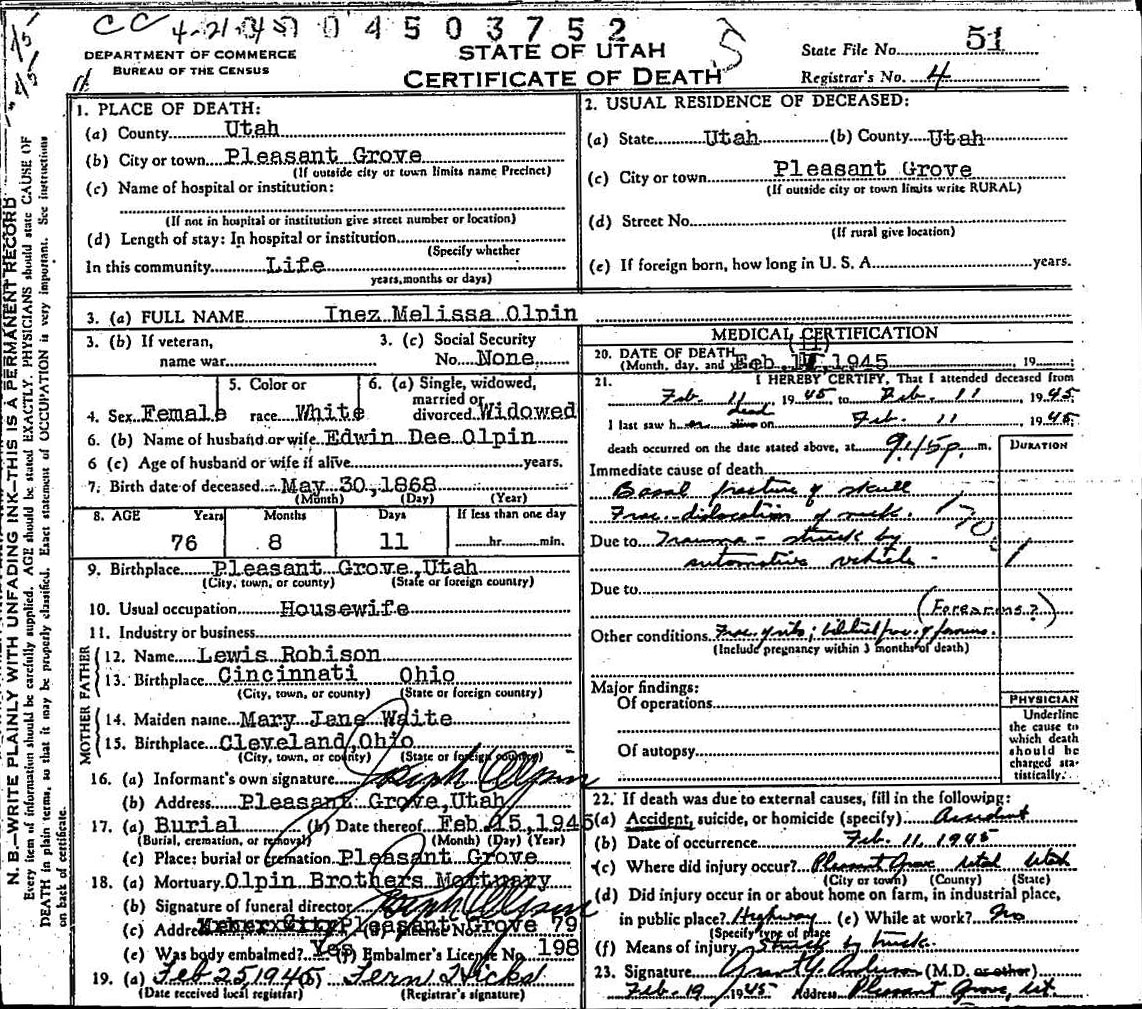 CC 4-21-45 0 4 5 0 3 7 5 2
DEPARTMENT OF COMMERCE
BUREAU OF THE CENSUS
STATE OF UTAH
CERTIFICATE OF DEATH
5
State File No. 51
Registrar's No. 4
N. B.—WRITE PLAINLY WITH UNFADING INK—THIS IS A PERMANENT RECORD
Every item of information should be carefully supplied. AGE should be stated EXACTLY. PHYSICIANS should state CAUSE OF
DEATH in plain terms, so that it may be properly classified. Exact statement of OCCUPATION is very important. See instructions
on back of certificate.
1. PLACE OF DEATH:
(a) County Utah
(b) City or town Pleasant Grove
(If outside city or town limits name Precinct)
(c) Name of hospital or institution:
(If not in hospital or institution give street number or location)
(d) Length of stay: In hospital or institution
(Specify whether
In this community Life
years, months or days)
2. USUAL RESIDENCE OF DECEASED:
(a) State Utah (b) County Utah
(c) City or town Pleasant Grove
(If outside city or town limits write RURAL)
(d) Street No.
(If rural give location)
(e) If foreign born, how long in U. S. A. years.
3. (a) FULL NAME Inez Melissa Olpin
3. (b) If veteran,
name war
3. (c) Social Security
No. None
4. Sex Female
5. Color or
race White
6. (a) Single, widowed,
married or
divorced Widowed
6. (b) Name of husband or wife Edwin Dee Olpin
6 (c) Age of husband or wife if alive years.
7. Birth date of deceased May 30, 1868
(Month) (Day) (Year)
8. AGE Years Months Days If less than one day
76 8 11 hr. min.
9. Birthplace Pleasant Grove, Utah
(City, town, or county) (State or foreign country)
10. Usual occupation Housewife
11. Industry or business
FATHER
12. Name Lewis Robison
13. Birthplace Cincinnati Ohio
(City, town, or county) (State or foreign country)
MOTHER
14. Maiden name Mary Jane Waite
15. Birthplace Cleveland, Ohio
(City, town, or county) (State or foreign country)
16. (a) Informant's own signature Olpin
(b) Address Pleasant Grove, Utah
17. (a) Burial (b) Date thereof Feb. 15, 1945
(Burial, cremation, or removal) (Month) (Day) (Year)
(c) Place: burial or cremation Pleasant Grove
18. (a) Mortuary Olpin Brothers Mortuary
(b) Signature of funeral director Olpin
(c) Address Heber City Pleasant Grove 79
(e) Was body embalmed? Yes (f) Embalmer's License No. 198
19. (a) Feb 25, 1945 (b) Fern Hicks
(Date received local registrar) (Registrar's signature)
MEDICAL CERTIFICATION
20. DATE OF DEATH
(Month, day, and year) Feb. (11), 1945 19
21. I HEREBY CERTIFY, That I attended deceased from
Feb. 11, 1945 to Feb. 11 1945
dead
I last saw her alive on Feb. 11, 1945
death occurred on the date stated above, at 9:15 p. m.
DURATION
Immediate cause of death
Basal fracture of skull
Frac. dislocation of neck. 170
Due to Trauma - struck by
automotive vehicle -
Due to
(Forearms?)
Other conditions Frac. of ribs; bilateral frac. of forearms.
(Include pregnancy within 3 months of death)
Major findings:
Of operations
Of autopsy
PHYSICIAN
Underline
the cause to
which death
should be
charged sta-
tistically.
22. If death was due to external causes, fill in the following:
(a) Accident, suicide, or homicide (specify) Accident
(b) Date of occurrence Feb. 11, 1945
(c) Where did injury occur? Pleasant Grove Utah Utah
(City or town) (County) (State)
(d) Did injury occur in or about home on farm, in industrial place,
in public place? Highway (e) While at work? No
(Specify type of place
(f) Means of injury Struck by truck.
23. Signature Grant Y. Anderson (M.D. or other)
Feb. 19 1945 Address Pleasant Grove, Ut.